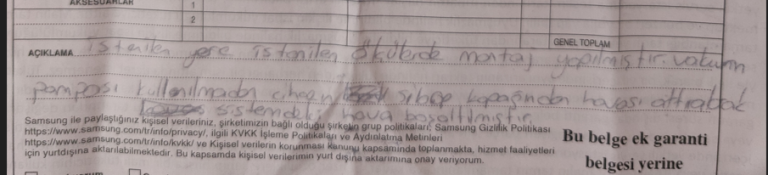 AKSESUARLAR
1
2
GENEL TOPLAM
AÇIKLAMA istenilen yere istenilen şekilde montaj yapılmıştır. vakum
pompası kullanılmadan cihazın sibop kapağından havası attırılarak
sistemdeki hava boşaltılmıştır.
Samsung ile paylaştığınız kişisel verileriniz, şirketimizin bağlı olduğu şirketin grup politikaları; Samsung Gizlilik Politikası
https://www.samsung.com/tr/info/privacy/, ilgili KVKK İşleme Politikaları ve Aydınlatma Metinleri
https://www.samsung.com/tr/info/kvkk/ ve Kişisel verilerin korunması kanunu kapsamında toplanmakta, hizmet faaliyetleri
için yurtdışına aktarılabilmektedir. Bu kapsamda kişisel verilerimin yurt dışına aktarımına onay veriyorum.
Bu belge ek garanti
belgesi yerine